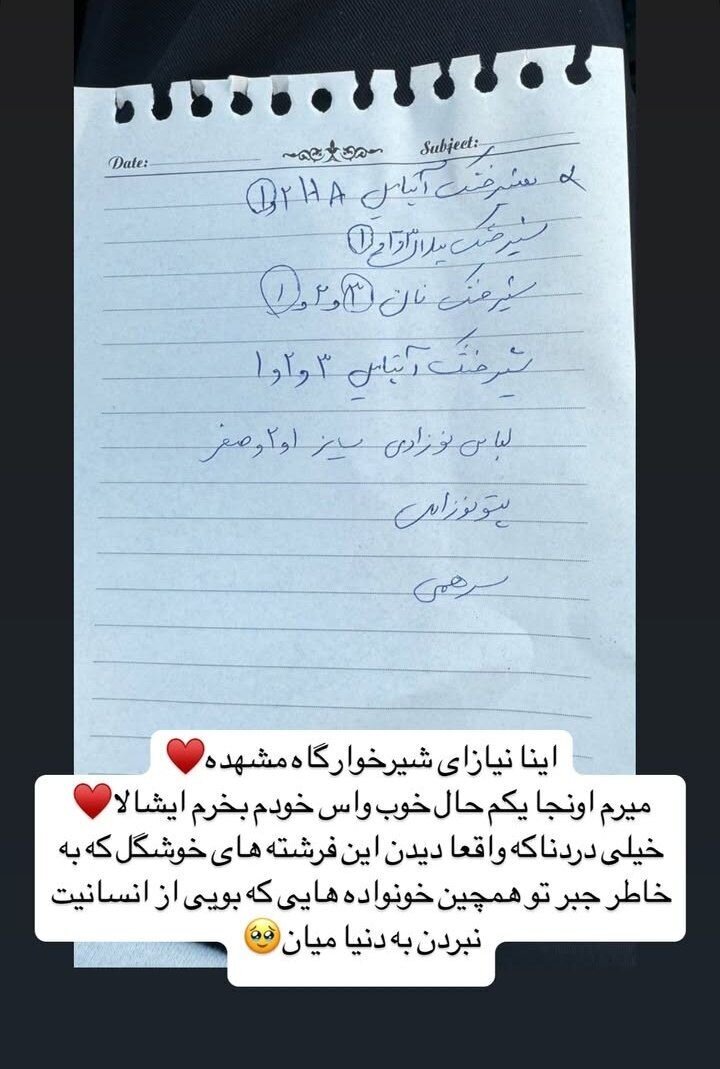 Date: Subject:
شیرخشک آپتامیل HA ۲و۱
شیرخشک ببلاک ۳و۲و۱
شیرخشک نان ۳و۲و۱
شیرخشک آپتامیل ۳و۲و۱
لباس نوزادی سایز ۱و۲وصفر
پتو نوزادی
سرهمی
اینا نیازای شیرخوارگاه مشهده♥️
میرم اونجا یکم حال خوب واس خودم بخرم ایشالا♥️
خیلی دردناکه واقعا دیدن این فرشته های خوشگل که به
خاطر جبر تو همچین خونواده هایی که بویی از انسانیت
نبردن به دنیا میان🥹